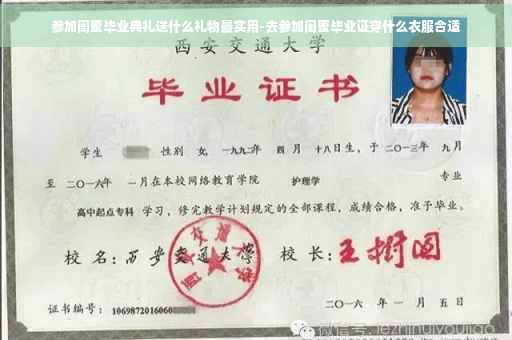 参加闺蜜毕业典礼送什么礼物最实用-去参加闺蜜毕业证穿什么衣服合适
西安交通大学
毕业证书
学生 性别 女, 一九九二年 四月 十八日生, 于 二〇一三年 九月
至 二〇一六年 一月在本校网络教育学院 护理学 专业
高中起点专科 学习, 修完教学计划规定的全部课程, 成绩合格, 准予毕业。
校 名: 西安交通大学 校 长: 王树国
西安交通大学
证书编号: 1069872016060
二〇一六 年 一 月 五 日
微信号: jiezhihuiyoujiao